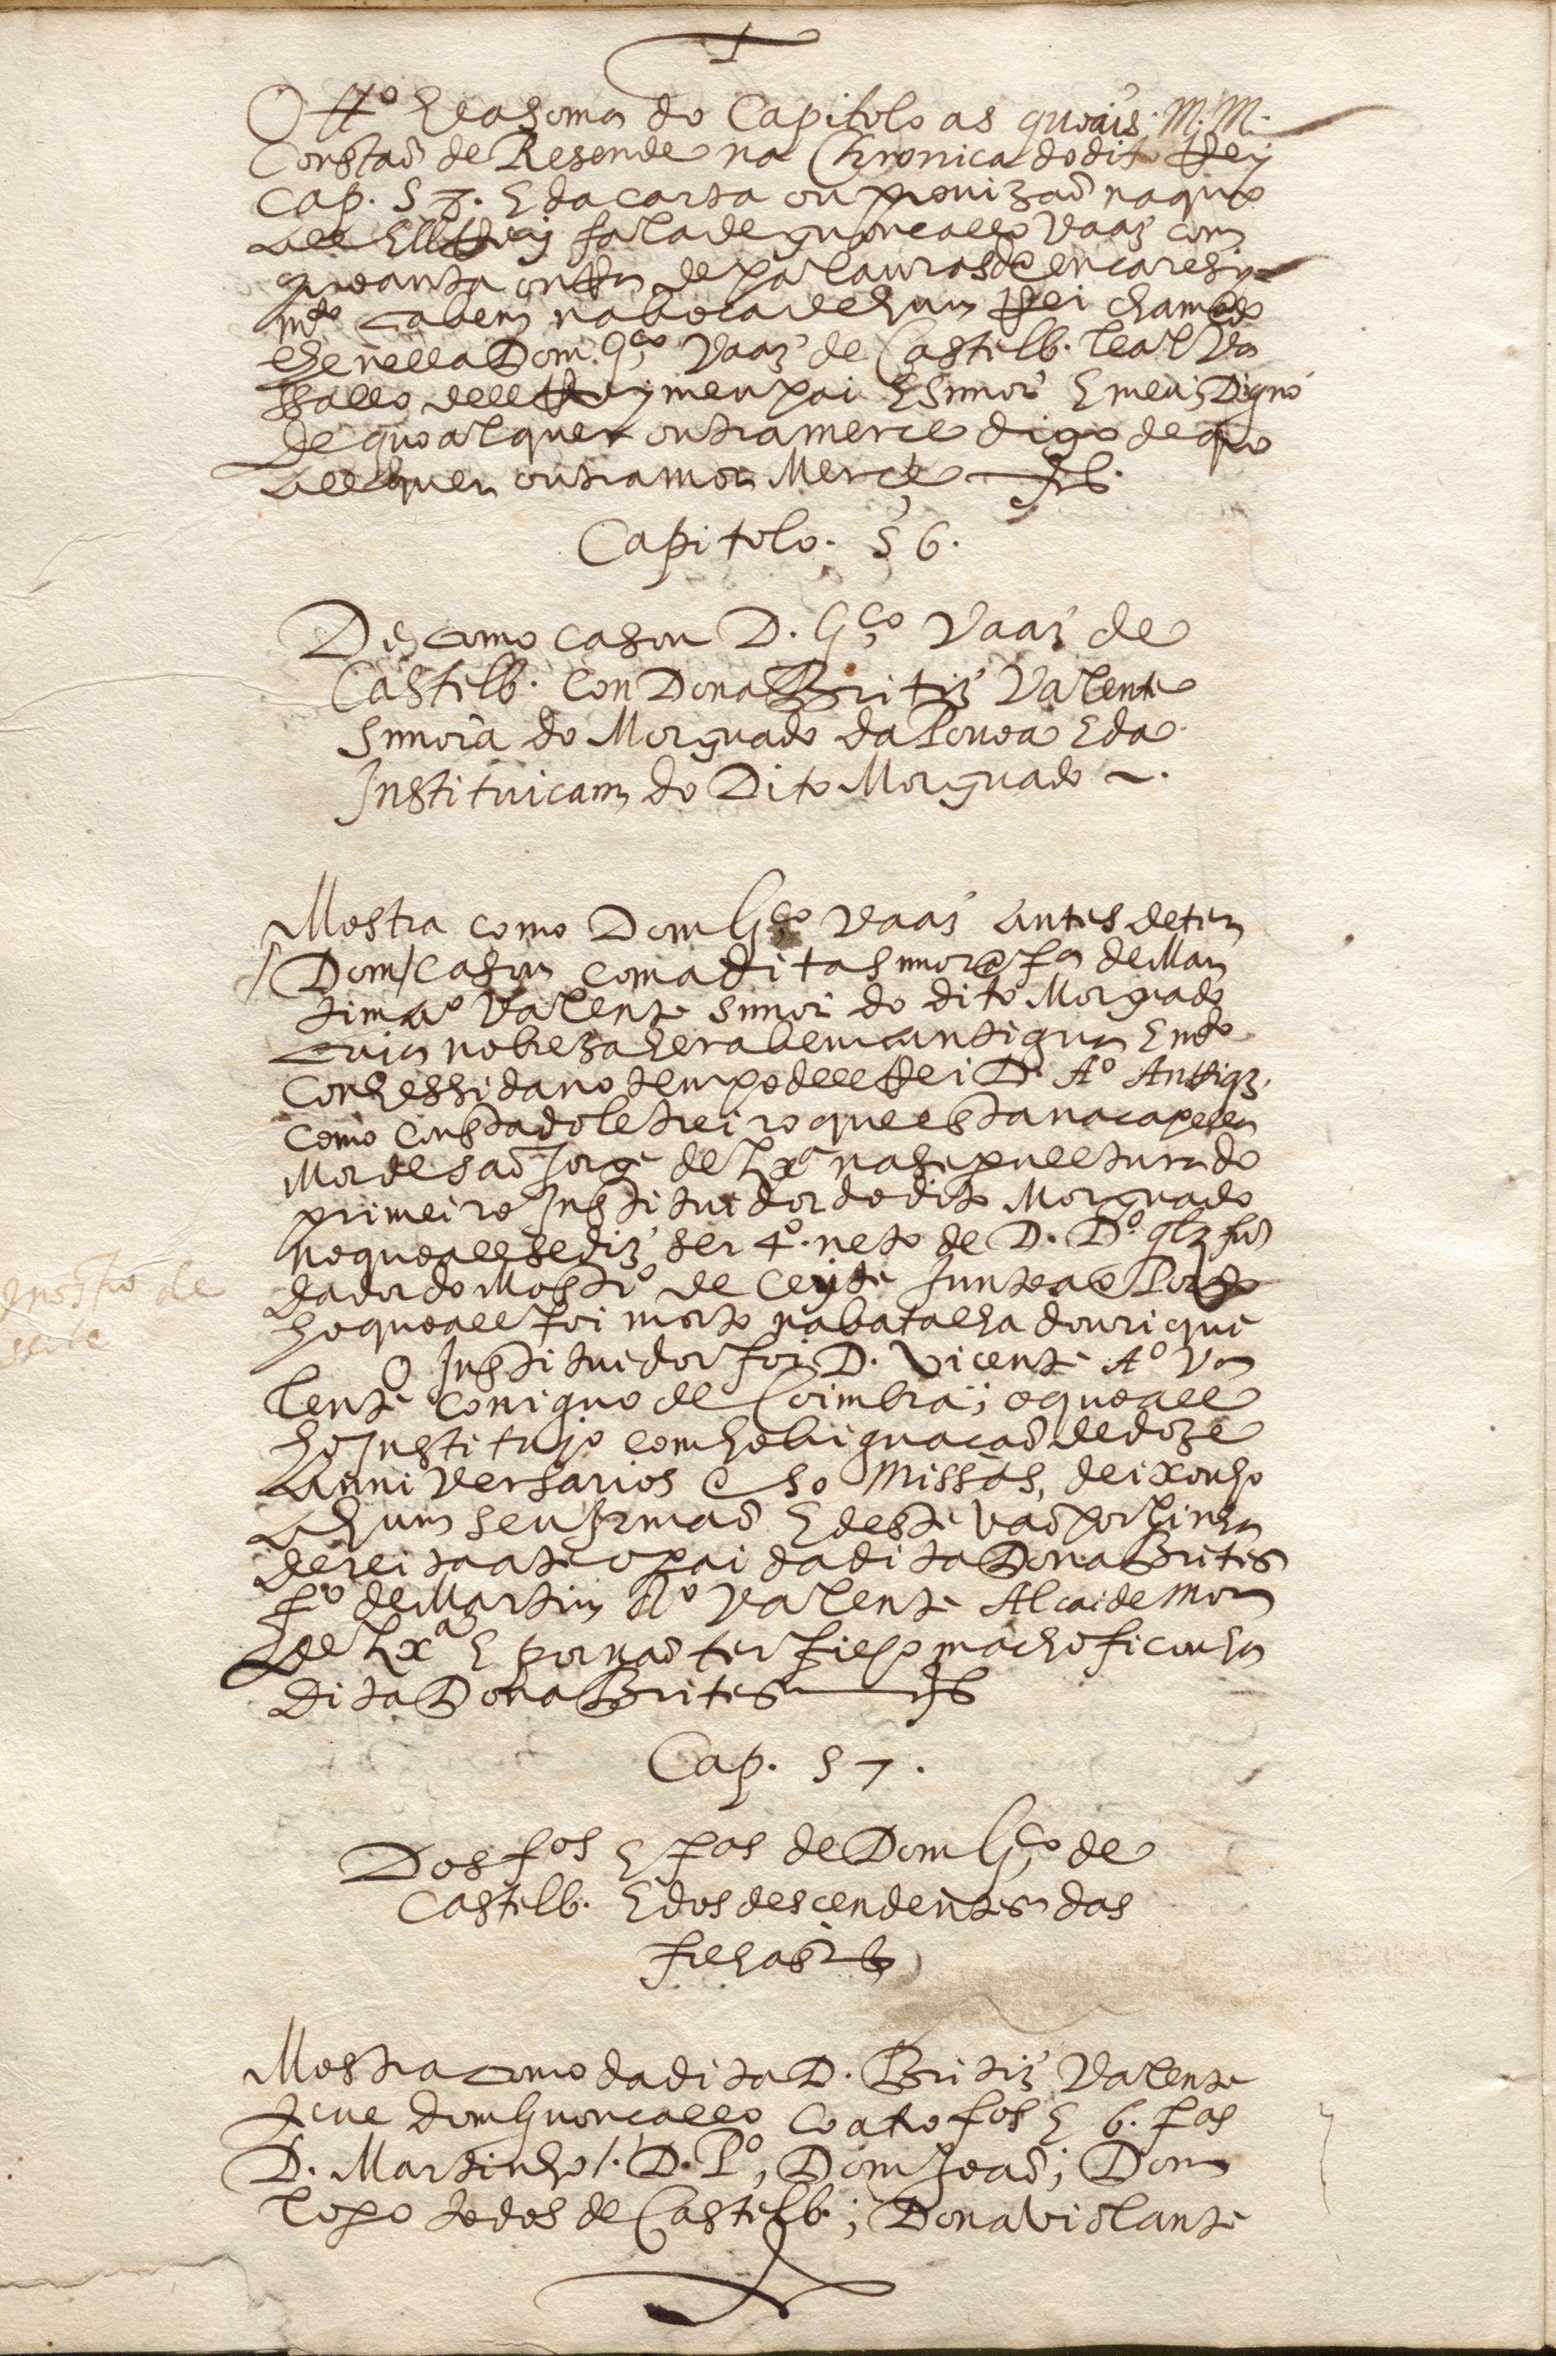 O tt.º he a soma do Capitolo as quais M. M.
Constaõ de Resende na Chronica do dito Rey
Cap. 57. E da carta ou prouizaõ na que
All ElRey fala de guoncallo Vaaz com
quoanta de palauras de encaresi
m.to cabem na boca de hum Rei chamado
lhe nella Dom. G.co Vaaz de Castelb. leal Va
ssallo dell Rey meu pai E Snnor E meu; Digno
de quoalquer outra merce digo de quo
allquer outra mor Merce
Capitolo. 56.
De como casou D. G.co Vaaz de
Castelb. con Dona Britiz Valente
Snnora do Morguado da Pouoa E da
Instituicam do Dito Morguado ~.
Mostra como Dom G.co Vaaz antes de ter
/ Dom / casou com a dita Snnora f.a de Mar
tim A.º Valente Snnor do dito Morguado
cuja nobreza hera bem antigua E m.to
Conhessida no tempo dell Rei D. A.º Anriqz.
como consta do letreiro que esta na capella
Mor de saõ Jorge de Lx.a na sepulltura do
primeiro Instituidor do dito Morguado
no quoall se diz ser 4.º neto de D. D.º glz fun
dador do Mostr.º de Ceyte Junto ao Porto
ho quoall foi morto na batalha dourique
O Instituidor foi D. Vicente A.º Va
lente Coniguo de Coimbra; o quoall
ho Instituyo com hobriguacaõ de doze
Anniversarios e 50 Missas, deixou ho
A hum seu Irmaõ E deste vaõ por linha
dereita ate o pai da dita Dona Brites
f.º de Martim A.º Valente Alcaide Mor
de Lx.a E por naõ ter filho macho ficou ha
dita Dona Brites
Cap. 57.
Dos f.os E f.as de Dom G.co de
Castelb. E dos descendentes das
filhas
Mostra como da dita D. Britiz Valente
teue dom Guoncallo coatro f.os E 6. f.as
D. Martinho /. D. P.º, Dom Joaõ; Dom
lopo todos de Castelb.; Dona Violante